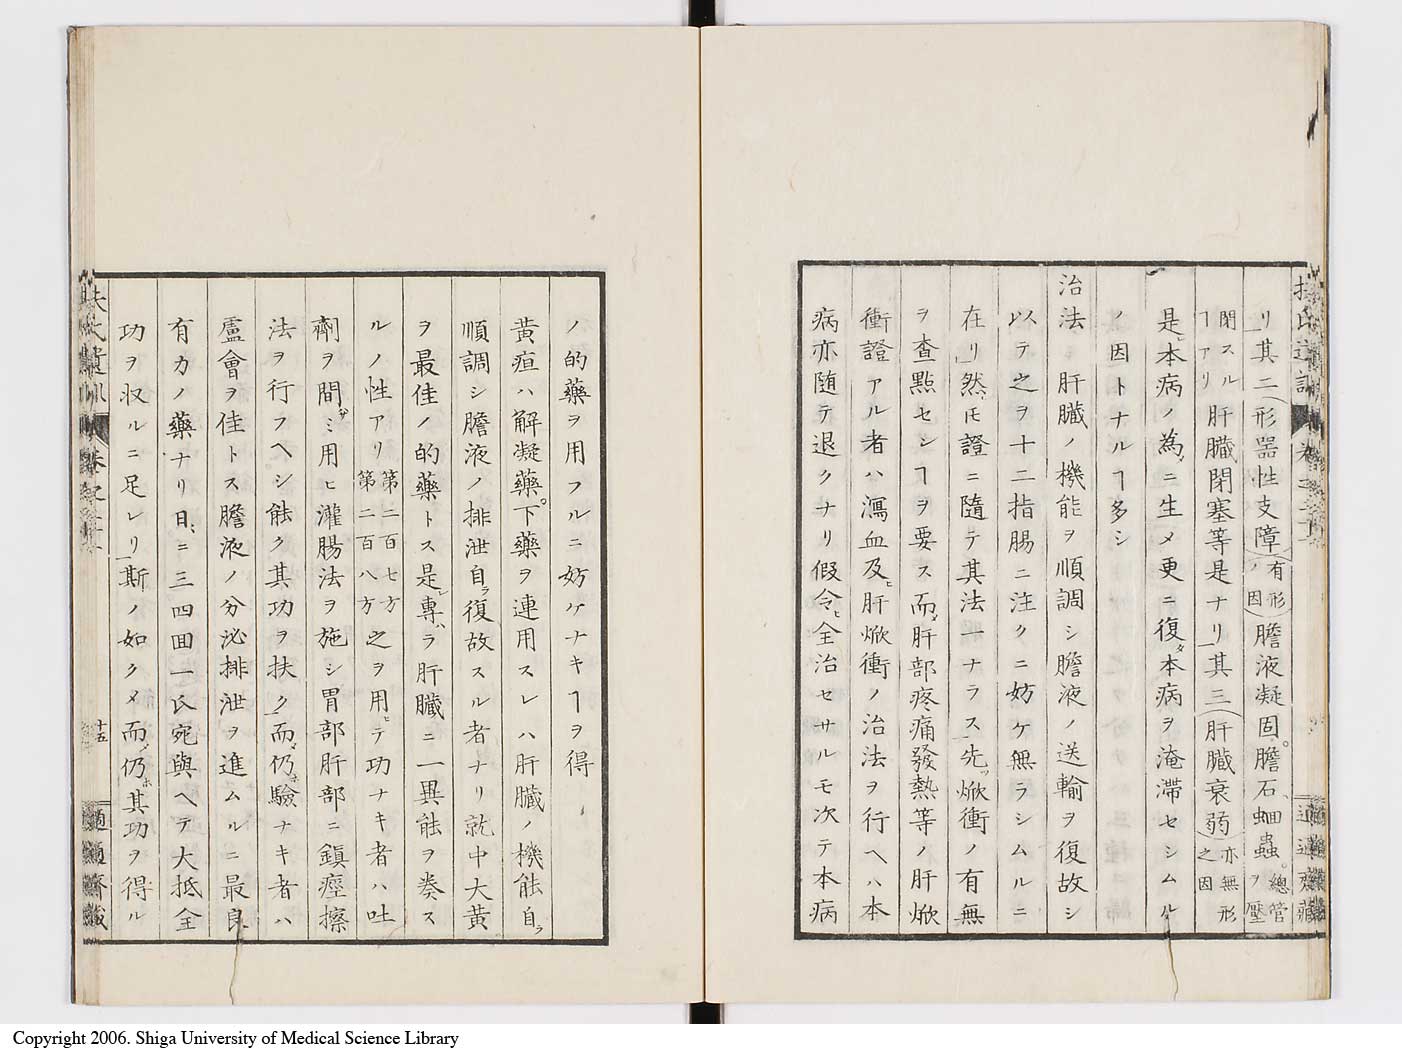 リ其二(形器性支障)(有形ノ因)膽液凝固。膽石、蛔蟲。總管ヲ壓
閉スルヿアリ肝臓閉塞等是ナリ其三(肝臓衰弱)亦無形之因
是レ本病ノ為ニ生メ更ニ復タ本病ヲ淹滞セシムル
ノ因トナルヿ多シ
治法ハ肝臓ノ機能ヲ順調シ膽液ノ送輸ヲ復故シ
以テ之ヲ十二指腸ニ注クニ妨ケ無ラシムルニ
在リ然𪜈證ニ隨テ其法一ナラス先ツ焮衝ノ有無
ヲ查點セシヿヲ要ス而メ肝部疼痛發熱等ノ肝焮
衝證アル者ハ瀉血及ヒ肝焮衝ノ治法ヲ行ヘハ本
病亦随テ退クナリ假令ヒ全治セサルモ次テ本病
ノ的藥ヲ用フルニ妨ケナキヿヲ得
黄疸ハ解凝藥。下藥ヲ連用スレハ肝臓ノ機能自ラ
順調シ膽液ノ排泄自ラ復故スル者ナリ就中大黄
ヲ最佳ノ的藥トス是レ專ハラ肝臓ニ一異能ヲ奏ス
ルノ性アリ第二百七方第二百八方之ヲ用ヒテ功ナキ者ハ吐
劑ヲ間ミ用ヒ灌腸法ヲ施シ胃部肝部ニ鎮痙擦
法ヲ行フヘシ能ク其功ヲ扶ク而メ仍ホ驗ナキ者ハ
盧會ヲ佳トス膽液ノ分泌排泄ヲ進ムルニ最良
有力ノ藥ナリ日ニ三四回一氏宛與ヘテ大抵全
功ヲ収ルニ足レリ斯ノ如クメ而メ仍ホ其功ヲ得ル
扶氏遺訓 卷之
十五
適適齋藏
Copyright 2006. Shiga University of Medical Science Library